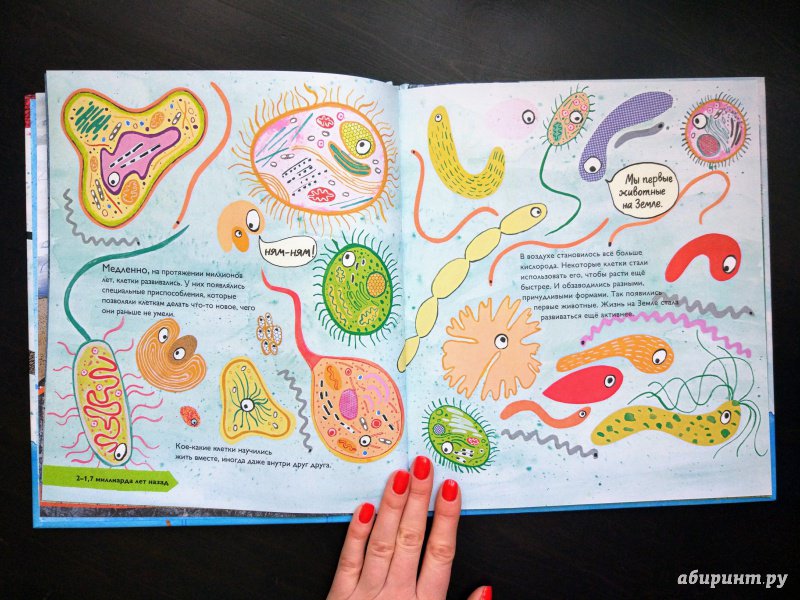 ням-ням!
Медленно, на протяжении миллионов
лет, клетки развивались. У них появлялись
специальные приспособления, которые
позволяли клеткам делать что-то новое, чего
они раньше не умели.
Кое-какие клетки научились
жить вместе, иногда даже внутри друг друга.
2–1,7 миллиарда лет назад
Мы первые
животные
на Земле.
В воздухе становилось всё больше
кислорода. Некоторые клетки стали
использовать его, чтобы расти ещё
быстрее. И обзаводились разными,
причудливыми формами. Так появились
первые животные. Жизнь на Земле стала
развиваться ещё активнее.
абиринт.ру